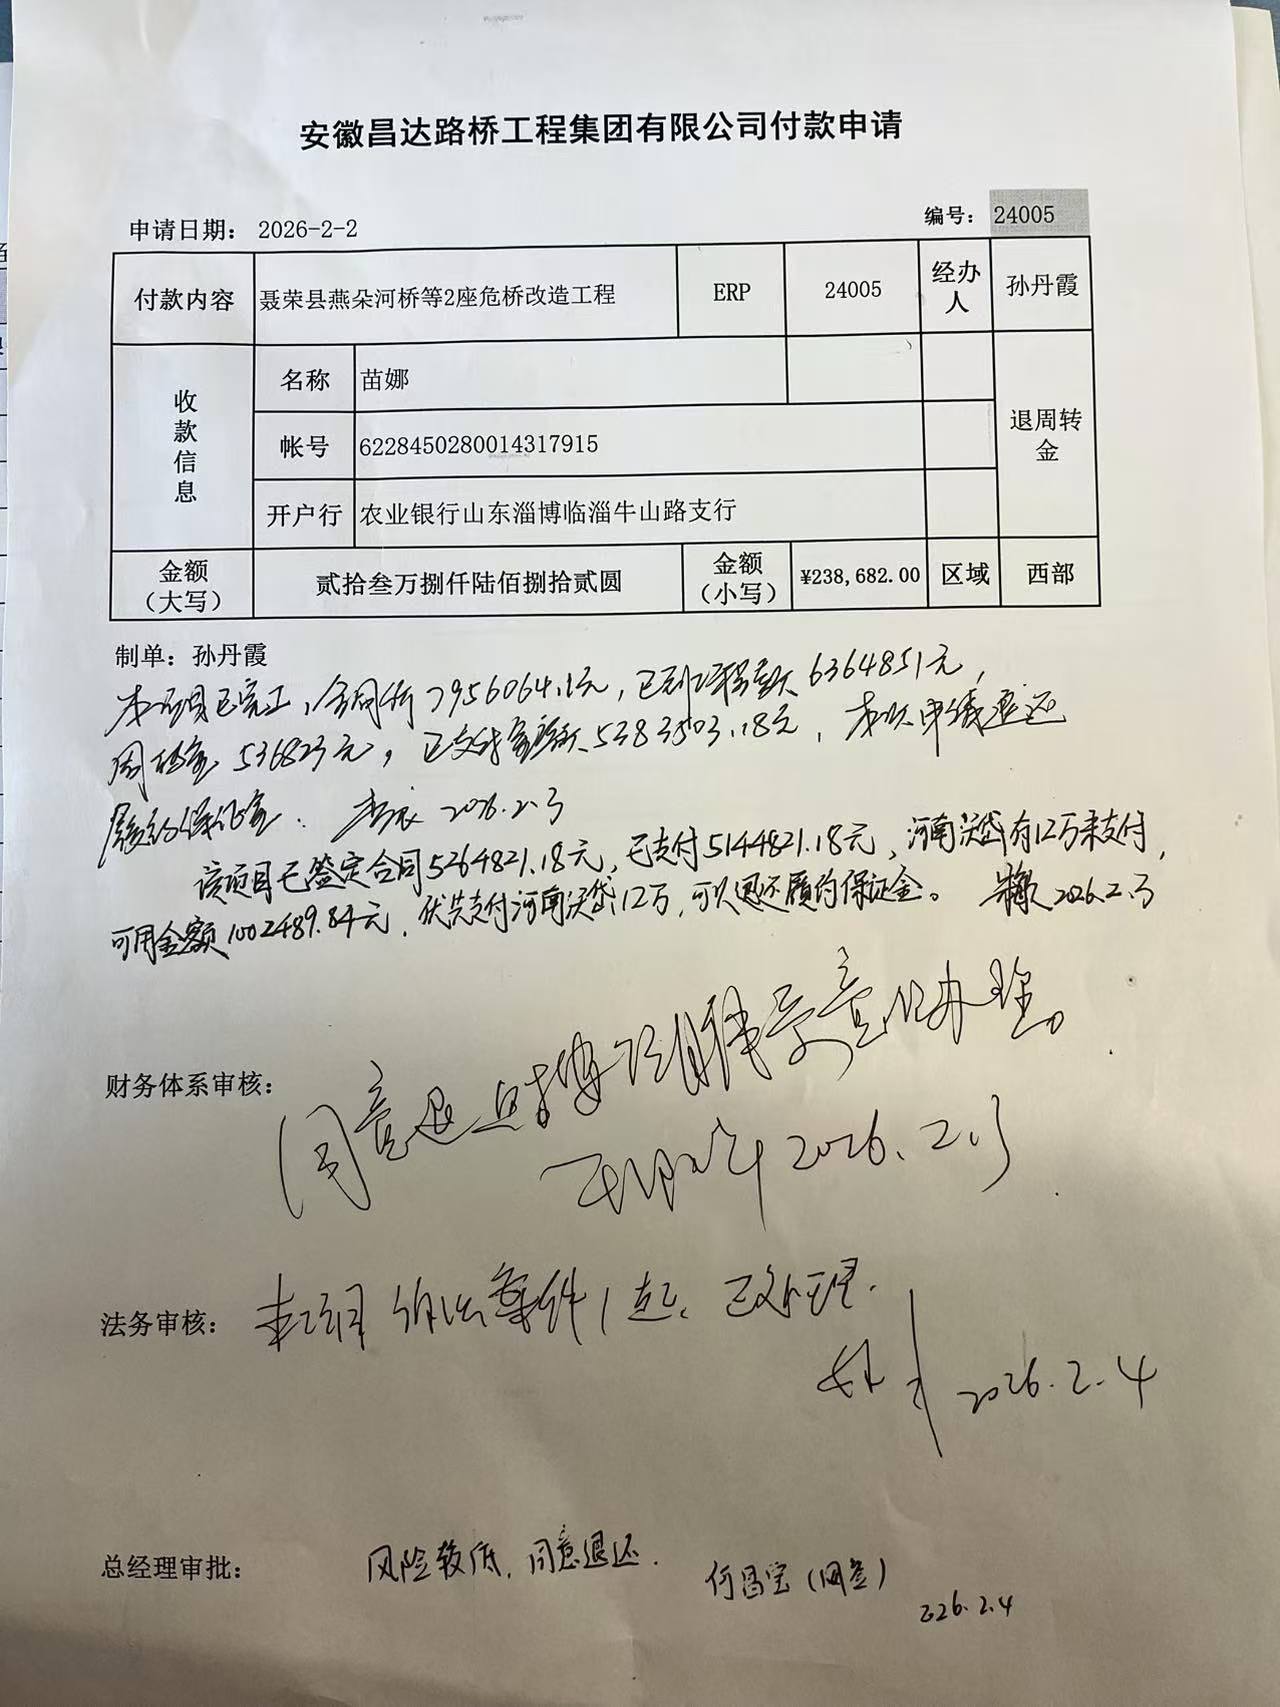 安徽昌达路桥工程集团有限公司付款申请
申请日期： 2026-2-2 编号： 24005
付款内容 聂荣县燕朵河桥等2座危桥改造工程 ERP 24005 经办人 孙丹霞
收款信息 名称 苗娜
帐号 6228450280014317915 退周转金
开户行 农业银行山东淄博临淄牛山路支行
金额（大写） 贰拾叁万捌仟陆佰捌拾贰圆 金额（小写） ¥238,682.00 区域 西部
制单：孙丹霞
本项目已完工，合同价7956064.1元，已到工程款6364851元，
周转金536823元，已支付金额5383503.18元，本次申请退还
履约保证金. 2026.2.3
该项目已签定合同5264821.18元，已支付5144821.18元，河南沃岱有12万未支付，
可用金额1002489.84元，优先支付河南沃岱12万，可以退还履约保证金。 2026.2.3
财务体系审核：
同意退 意见办理。
2026.2.3
法务审核： 本项目 案件1起，已处理.
2026.2.4
总经理审批： 风险较低，同意退还.
何昌宝（网签）
2026.2.4